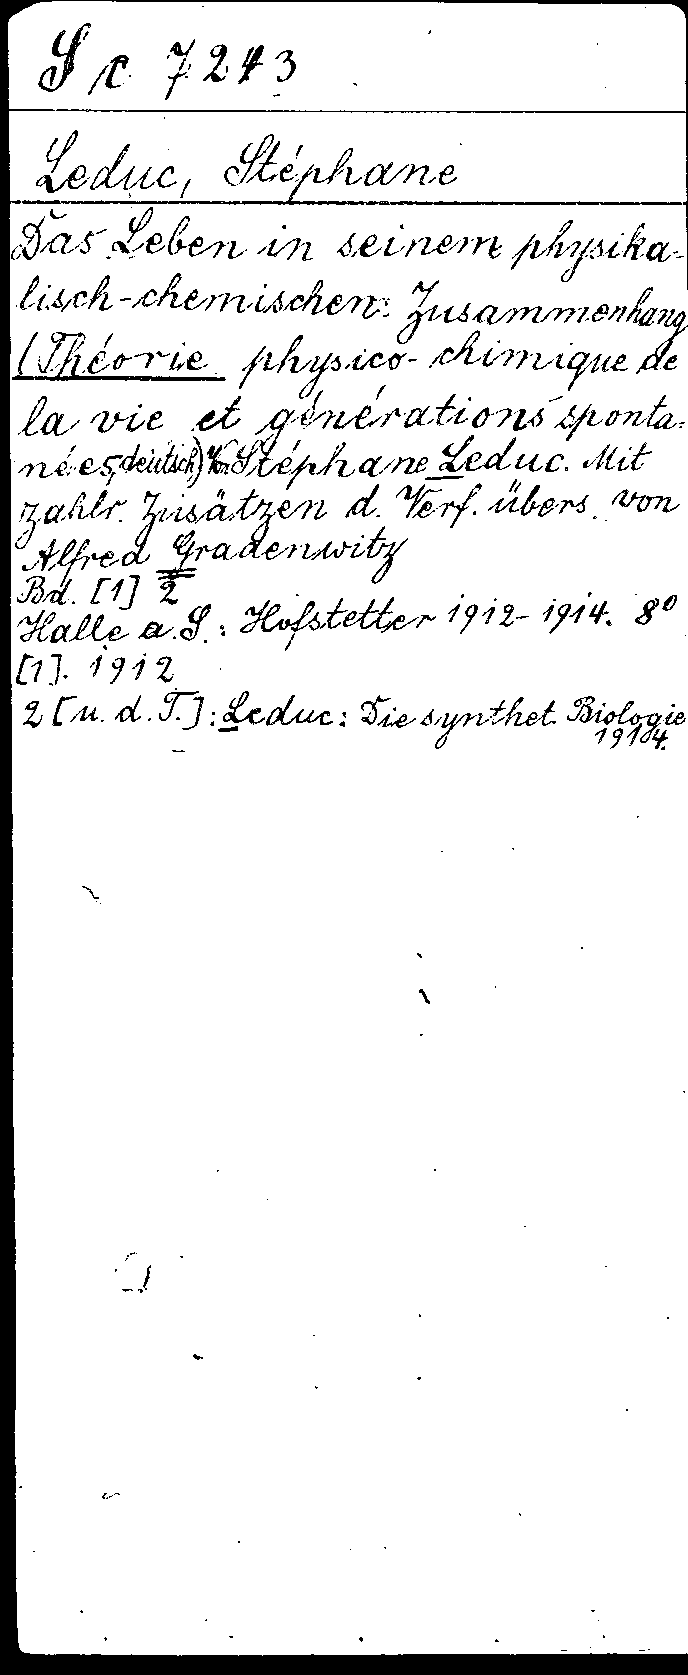 S c 7243
Leduc, Stéphane
Das Leben in seinem physika-
lisch-chemischen Zusammenhang
(Théorie physico-chimique de
la vie et générations sponta-
nées, deutsch) Von Stéphane Leduc. Mit
zahlr. Zusätzen d. Verf. übers. von
Alfred Gradenwitz
Bd. [1] 2
Halle a. S.: Hofstetter 1912-1914. 8°
[1]. 1912
2 [u. d. T.]: Leduc: Die synthet. Biologie
1914.